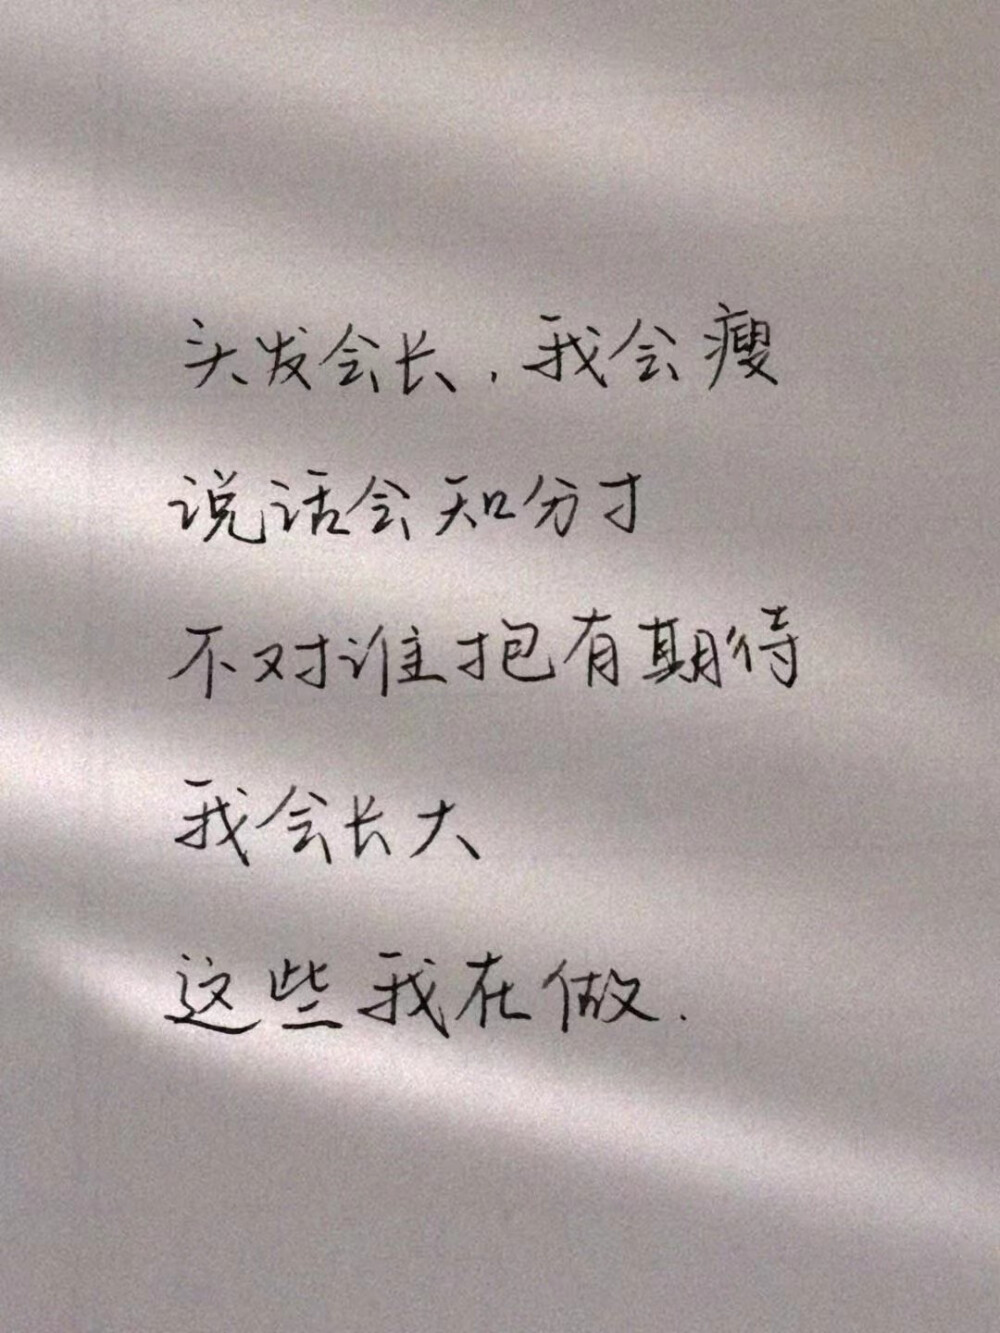 头发会长，我会瘦
说话会知分寸
不对谁抱有期待
我会长大
这些我在做.